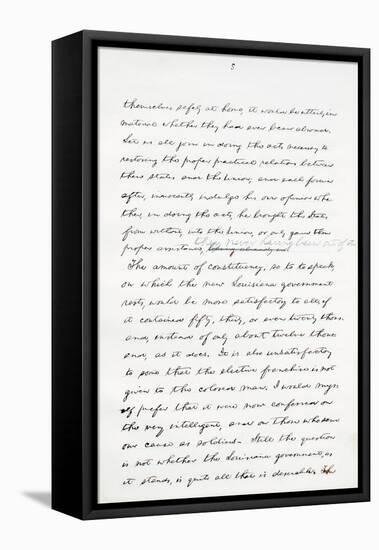 8
themselves safely at home, it would be utterly im
material whether they had ever been abroad.
Let us all join in doing the acts necessary to
restoring the proper practical relations between
these states and the Union; and each forever
after, innocently indulge his own opinion whe
ther, in doing the acts, he brought the States
from without, into the Union, or only gave them
proper assistance, they never having been out of it.
The amount of constituency, so to to speak,
on which the new Louisiana government
rests, would be more satisfactory to all, if
it contained fifty, thirty, or even twenty thous
and, instead of only about twelve thous
and, as it does. It is also unsatisfactory
to some that the elective franchise is not
given to the colored man. I would mys
elf prefer that it were now conferred on
the very intelligent, and on those who serve
our cause as soldiers. Still the question
is not whether the Louisiana government, as
it stands, is quite all that is desirable. The